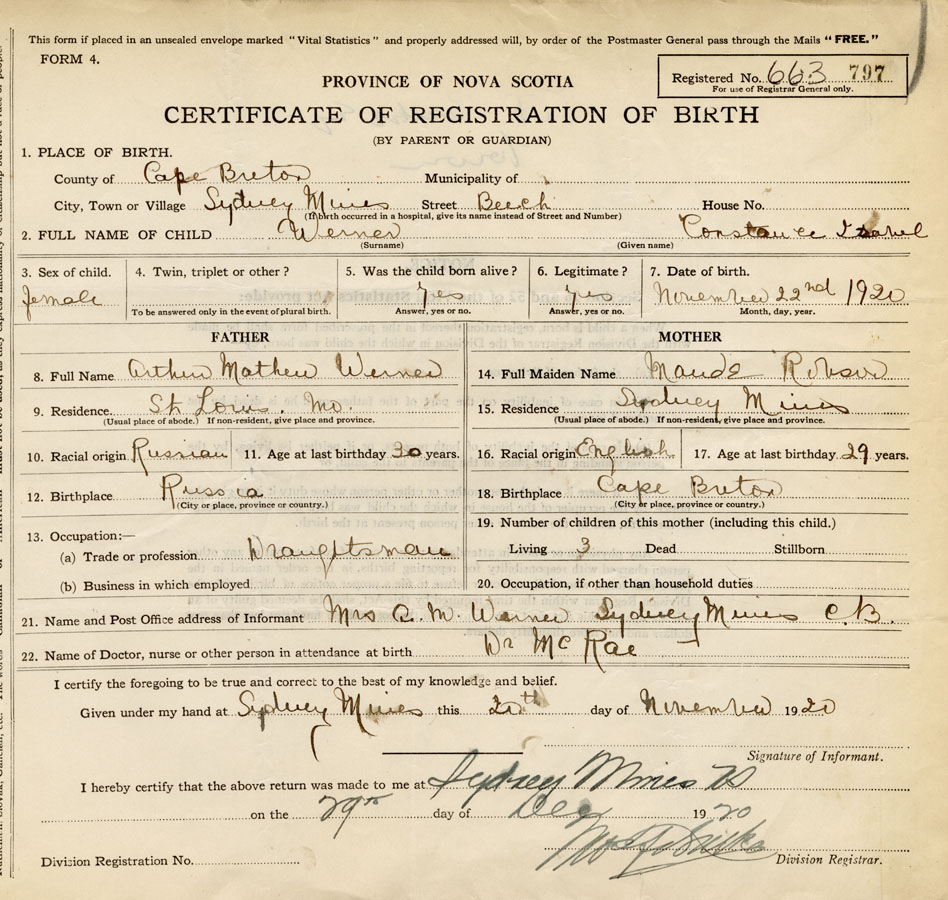 This form if placed in an unsealed envelope marked "Vital Statistics" and properly addressed will, by order of the Postmaster General pass through the Mails "FREE."
FORM 4.
Registered No. 663 797
For use of Registrar General only.
PROVINCE OF NOVA SCOTIA
CERTIFICATE OF REGISTRATION OF BIRTH
(BY PARENT OR GUARDIAN)
1. PLACE OF BIRTH.
County of Cape Breton Municipality of
City, Town or Village Sydney Mines Street Beech House No.
(If birth occurred in a hospital, give its name instead of Street and Number)
2. FULL NAME OF CHILD Werner Constance Isabel
(Surname) (Given name)
3. Sex of child. 4. Twin, triplet or other? 5. Was the child born alive? 6. Legitimate? 7. Date of birth.
Female yes yes November 22nd 1920
To be answered only in the event of plural birth. Answer, yes or no. Answer, yes or no. Month, day, year.
FATHER MOTHER
8. Full Name Arthur Mathew Werner 14. Full Maiden Name Maude Robson
9. Residence. St Louis. Mo. 15. Residence Sydney Mines
(Usual place of abode.) If non-resident, give place and province. (Usual place of abode.) If non-resident, give place and province.
10. Racial origin Russian 11. Age at last birthday 30 years. 16. Racial origin English 17. Age at last birthday 29 years.
12. Birthplace Russia 18. Birthplace Cape Breton
(City or place, province or country.) (City or place, province or country.)
13. Occupation:— 19. Number of children of this mother (including this child.)
(a) Trade or profession Draughtsman Living 3 Dead Stillborn
(b) Business in which employed 20. Occupation, if other than household duties
21. Name and Post Office address of Informant Mrs A. M. Werner Sydney Mines C.B.
22. Name of Doctor, nurse or other person in attendance at birth Dr McRae
I certify the foregoing to be true and correct to the best of my knowledge and belief.
Given under my hand at Sydney Mines this 20th day of November 1920
Signature of Informant.
I hereby certify that the above return was made to me at Sydney Mines
on the day of Dec 1920
Division Registration No. Division Registrar.